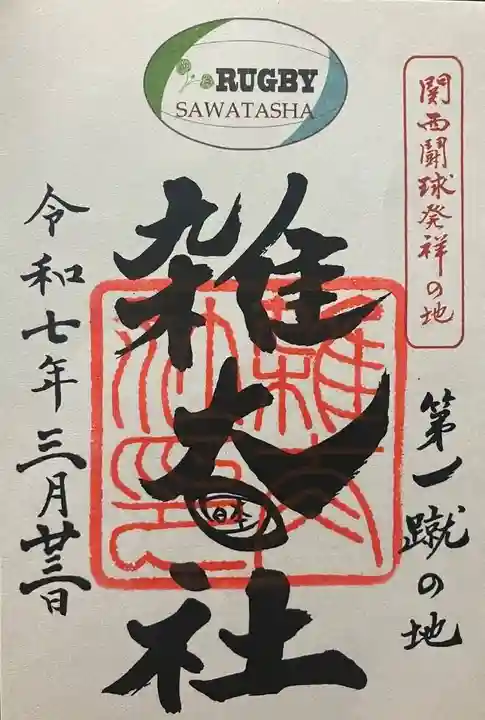 RUGBY
SAWATASHA
関西闘球発祥の地
第一蹴の地
雑太社
令和七年三月廿三日